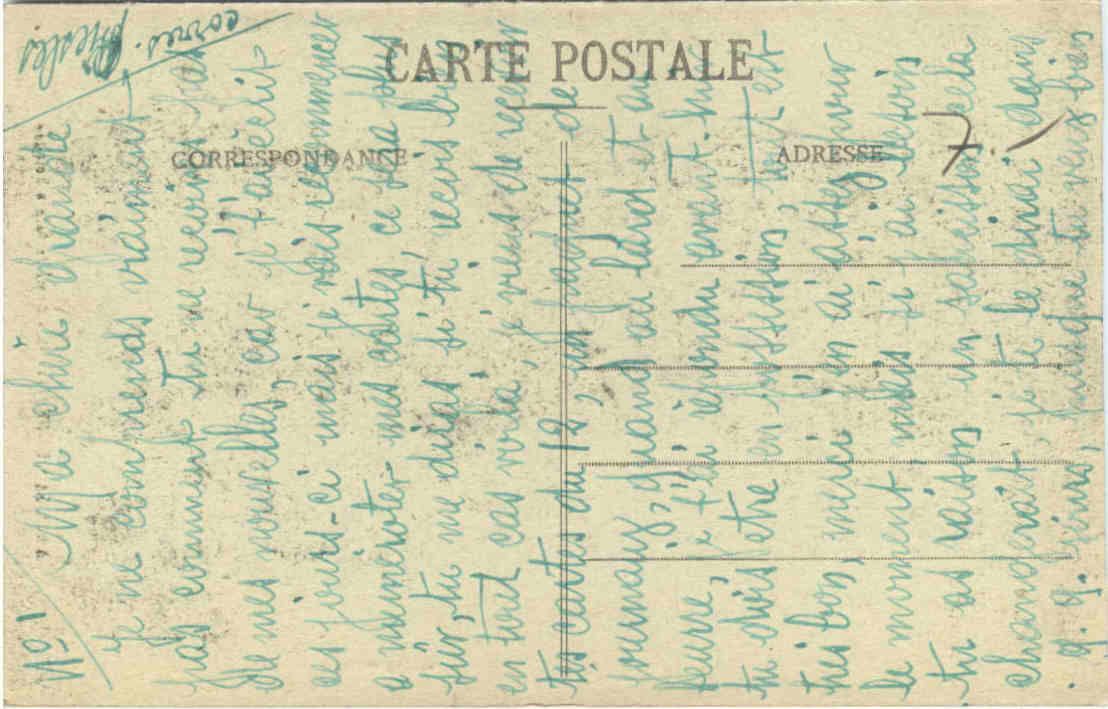 CARTE POSTALE
CORRESPONDANCE
ADRESSE
7.-
corres.
N° 1
Ma chère Jeanette
je ne comprends vraiment
pas comment tu ne reçois pas
de mes nouvelles, car je t'ai écrit
ces jours-ci mais je vais recommencer
a numéroter mes cartes ce sera plus
sûr, tu me diras si tu reçois bien
en tout cas voila, je viens de recevoir
tes cartes du 12, un paquet de
journaux, quand au lard et au
beurre, je t'ai répondu avant-hier
tu dois être en possession, tout est
très bon, merci j'en ai assez pour
le moment mais si j'ai besoin
tu as raison un saucisson cela
changerait je te le dirai dans
q.q. jours, puisque tu veux bien